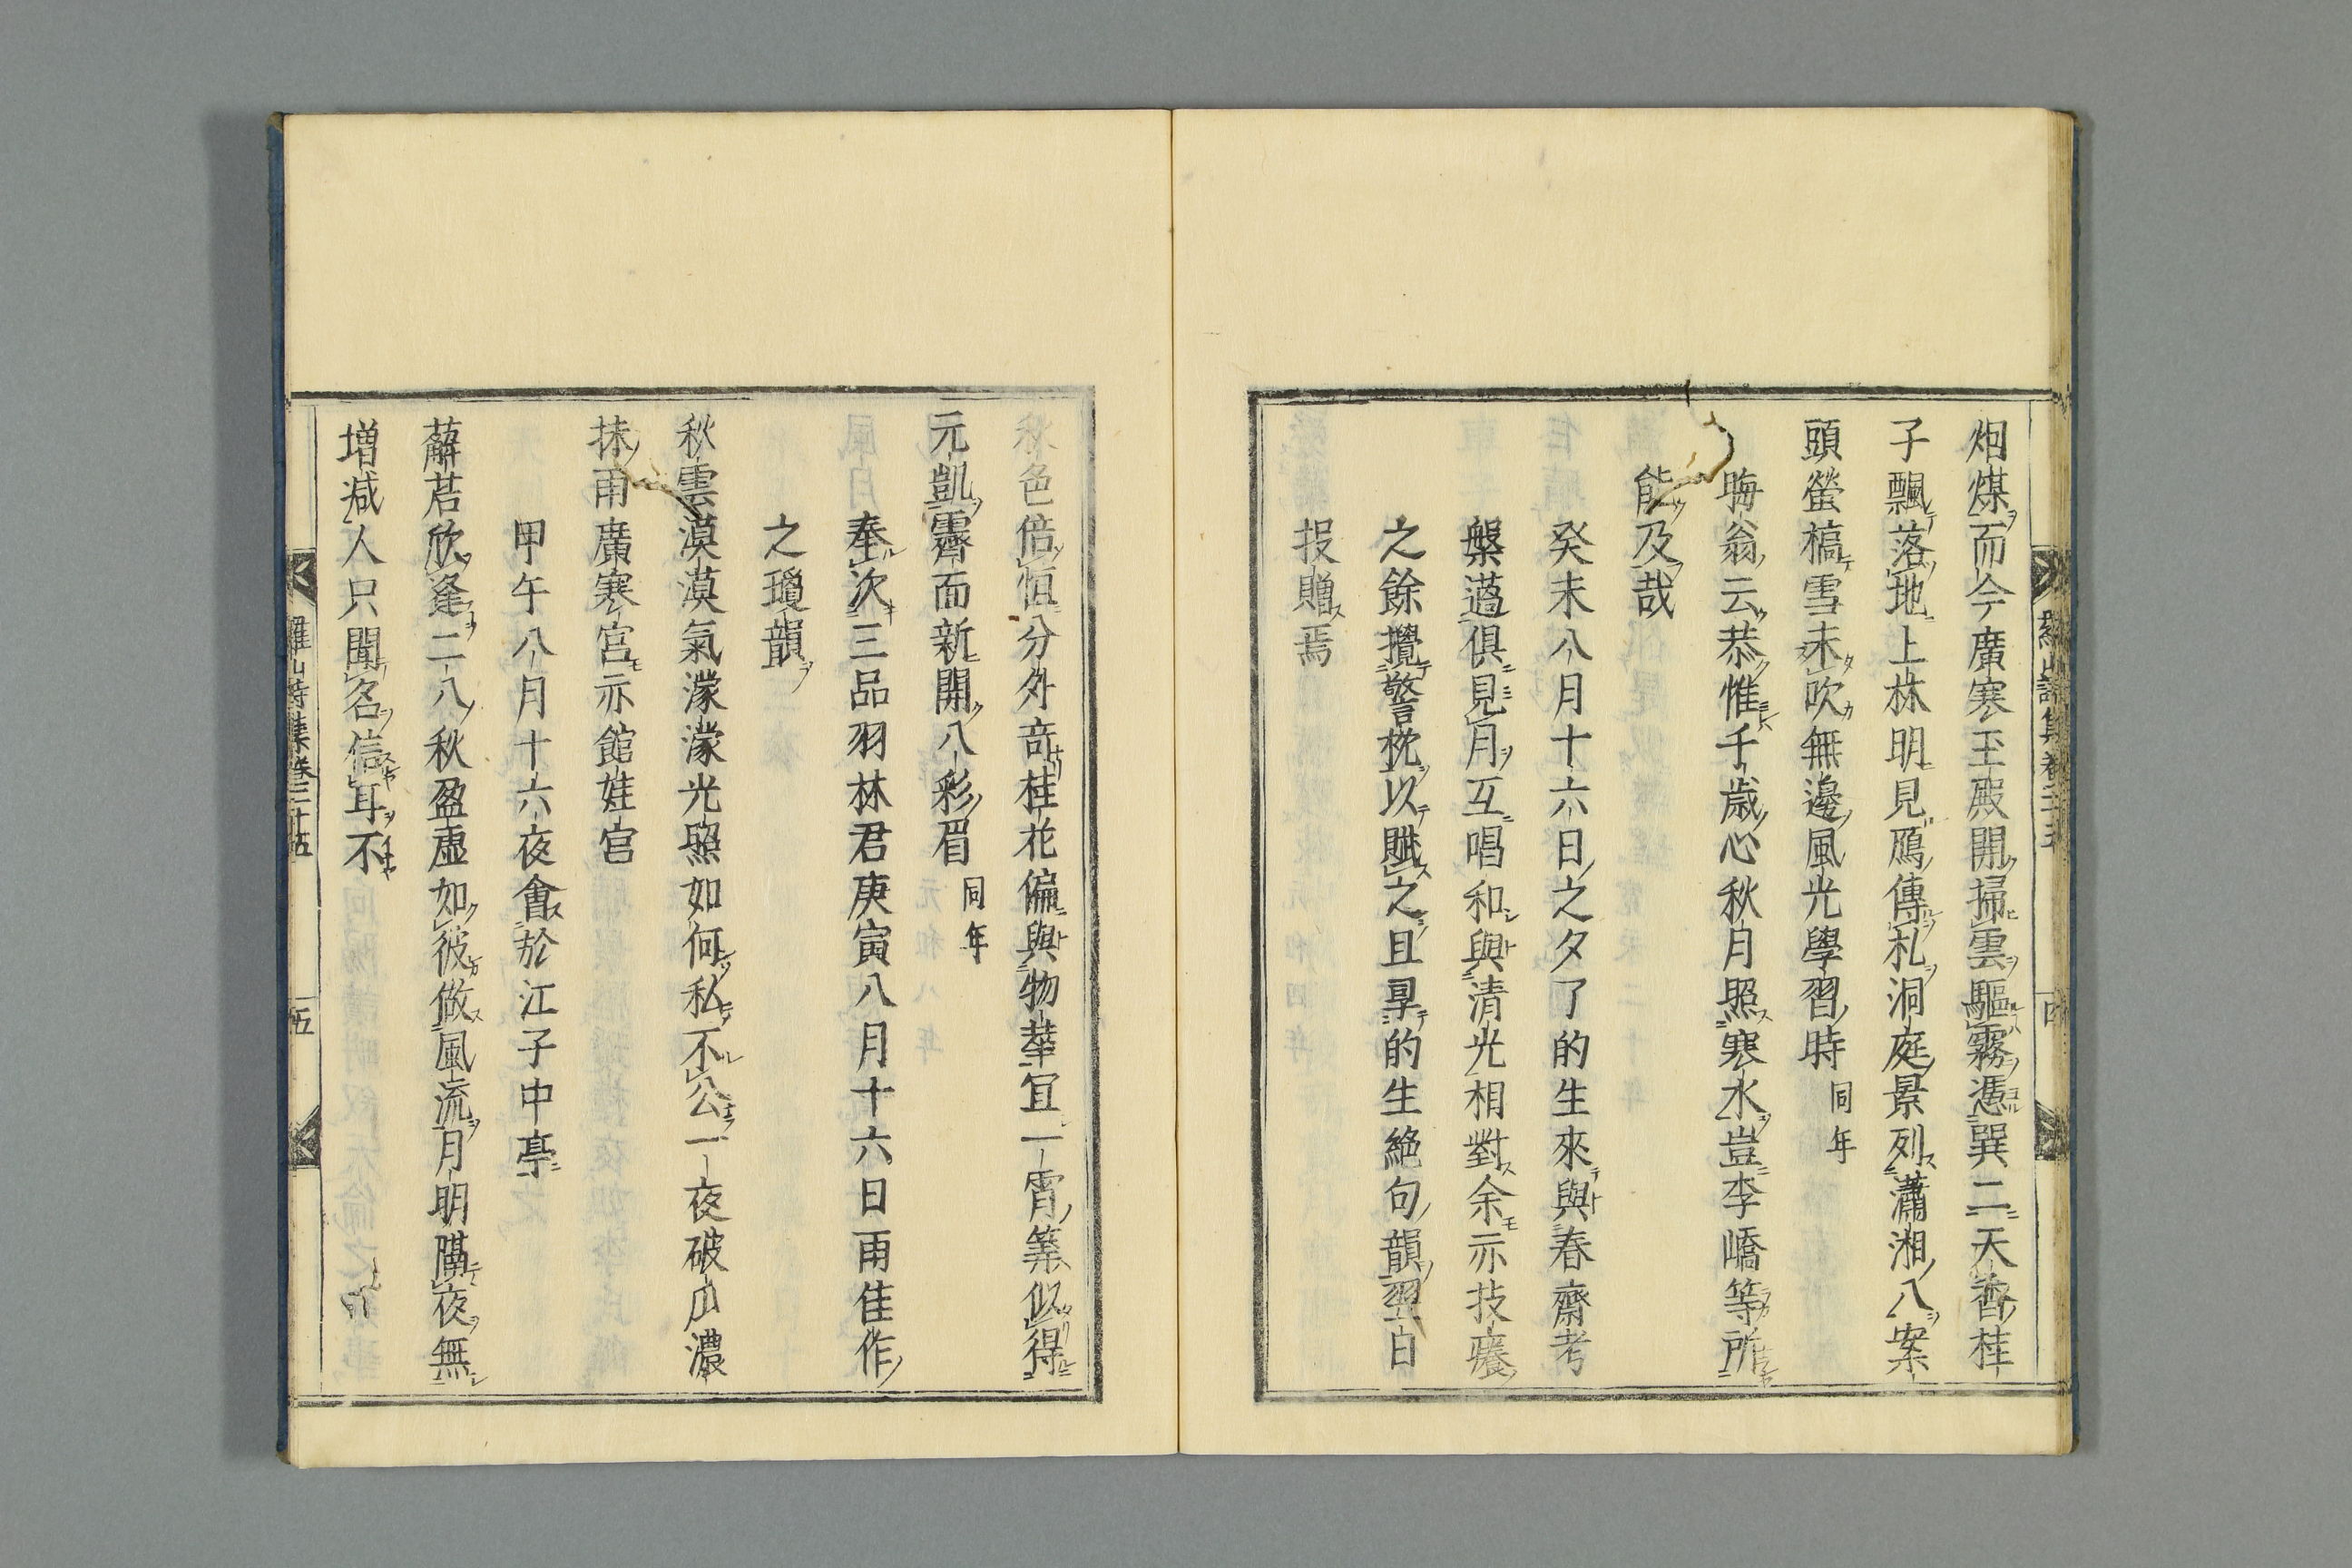 烟煤而今廣寒玉殿開掃雲驅霧憑巽二天香桂
子飄落地上林明見鴈傳札洞庭景列瀟湘八案
頭螢槁雪未吹無邊風光學習時 同年
晦翁云恭惟千歳心秋月照寒水豈李嶠等所
能及哉
癸未八月十六日之夕了的生來與春齋考
槃薖俱見月互唱和與清光相對余亦技癢
之餘攪警枕以賦之且尋的生絶句韻翌白
报贈焉
羅山詩集卷三十五
四
秋色倍恒分外奇桂花偏與物華冝一霄筭似得
元凱霽而新開八彩眉 同年
奉次三品羽林君庚寅八月十六日雨佳作
之瓊韻
秋雲漠漠氣濛濛光照如何私不公一夜破山濃
抹雨廣寒宮亦館娃宮
甲午八月十六夜會於江子中亭
薢茩欣逢二八秋盈虛如彼做風流月明隣夜無
増减人只聞名信耳不
羅山詩集卷三十五
五